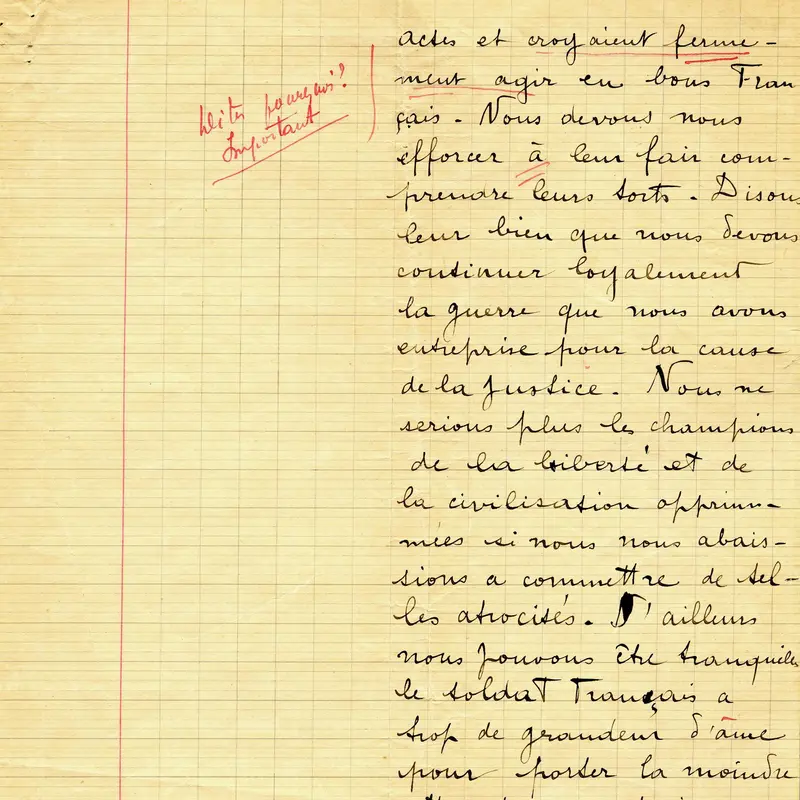 Dites pourquoi?
Important
actes et croyaient ferme-
ment agir en bons Fran
çais. Nous devons nous
efforcer à leur fair com-
prendre leurs torts. Disons
leur bien que nous devons
continuer loyalement
la guerre que nous avons
entreprise pour la cause
de la Justice. Nous ne
serions plus les champions
de la liberté et de
la civilisation opprim-
mées si nous nous abais-
sions a commettre de tel-
les atrocités. D'ailleurs
nous pouvons être tranquilles
le soldat Français a
trop de grandeur d'âme
pour porter la moindre